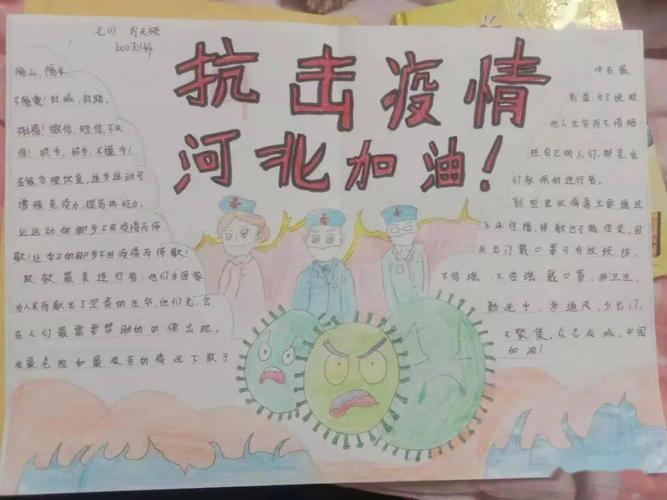 七(1) 刘天硕
抗击疫情
河北加油！
隔山，隔水，
不隔爱！封城，封路，
不隔情！微信，短信，不失
信！拱手，招手，不握手！
在家合理饮食，适当运动可
增强免疫力，提高抵抗力。
让运动的脚步不因疫情而停
歇！让学习的脚步不因疫情而停歇！
致敬最美逆行者：他们为国家
为人民而献出了宝贵的生命，他们总会
在人们最需要帮助的时候出现，
在最危险和最艰苦的情况下敢于
冲在最
前面，为了拯救
他人生命而不惜牺
牲自己的人们，都是我
们敬佩的逆行者。
新型冠状病毒主要通过
飞沫传播，接触也可能传染，因
此出门戴口罩可有效预防。
不信谣，不传谣，戴口罩，讲卫生，
勤洗手，多通风，少出门，
不聚集，众志成城，中国
加油！